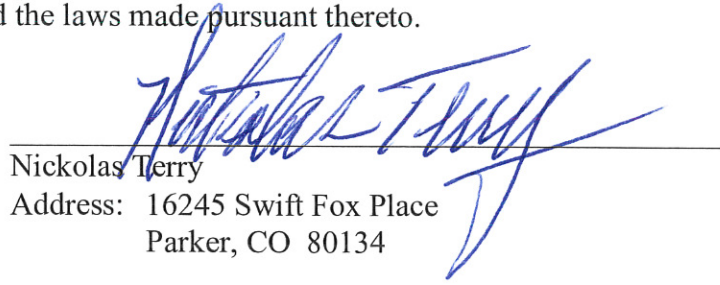 d the laws made pursuant thereto.
Nickolas Terry
Nickolas Terry
Address: 16245 Swift Fox Place
Parker, CO 80134